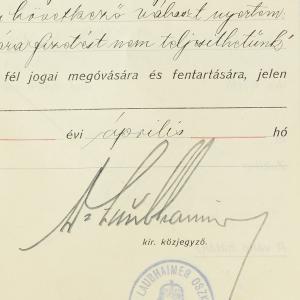 következő választ nyertem:
fizetést nem teljesíthetünk
fél jogai megóvására és fentartására, jelen
évi április hó
Dr Laubhaimer
kir. közjegyző.
LAUBHAIMER OSZK